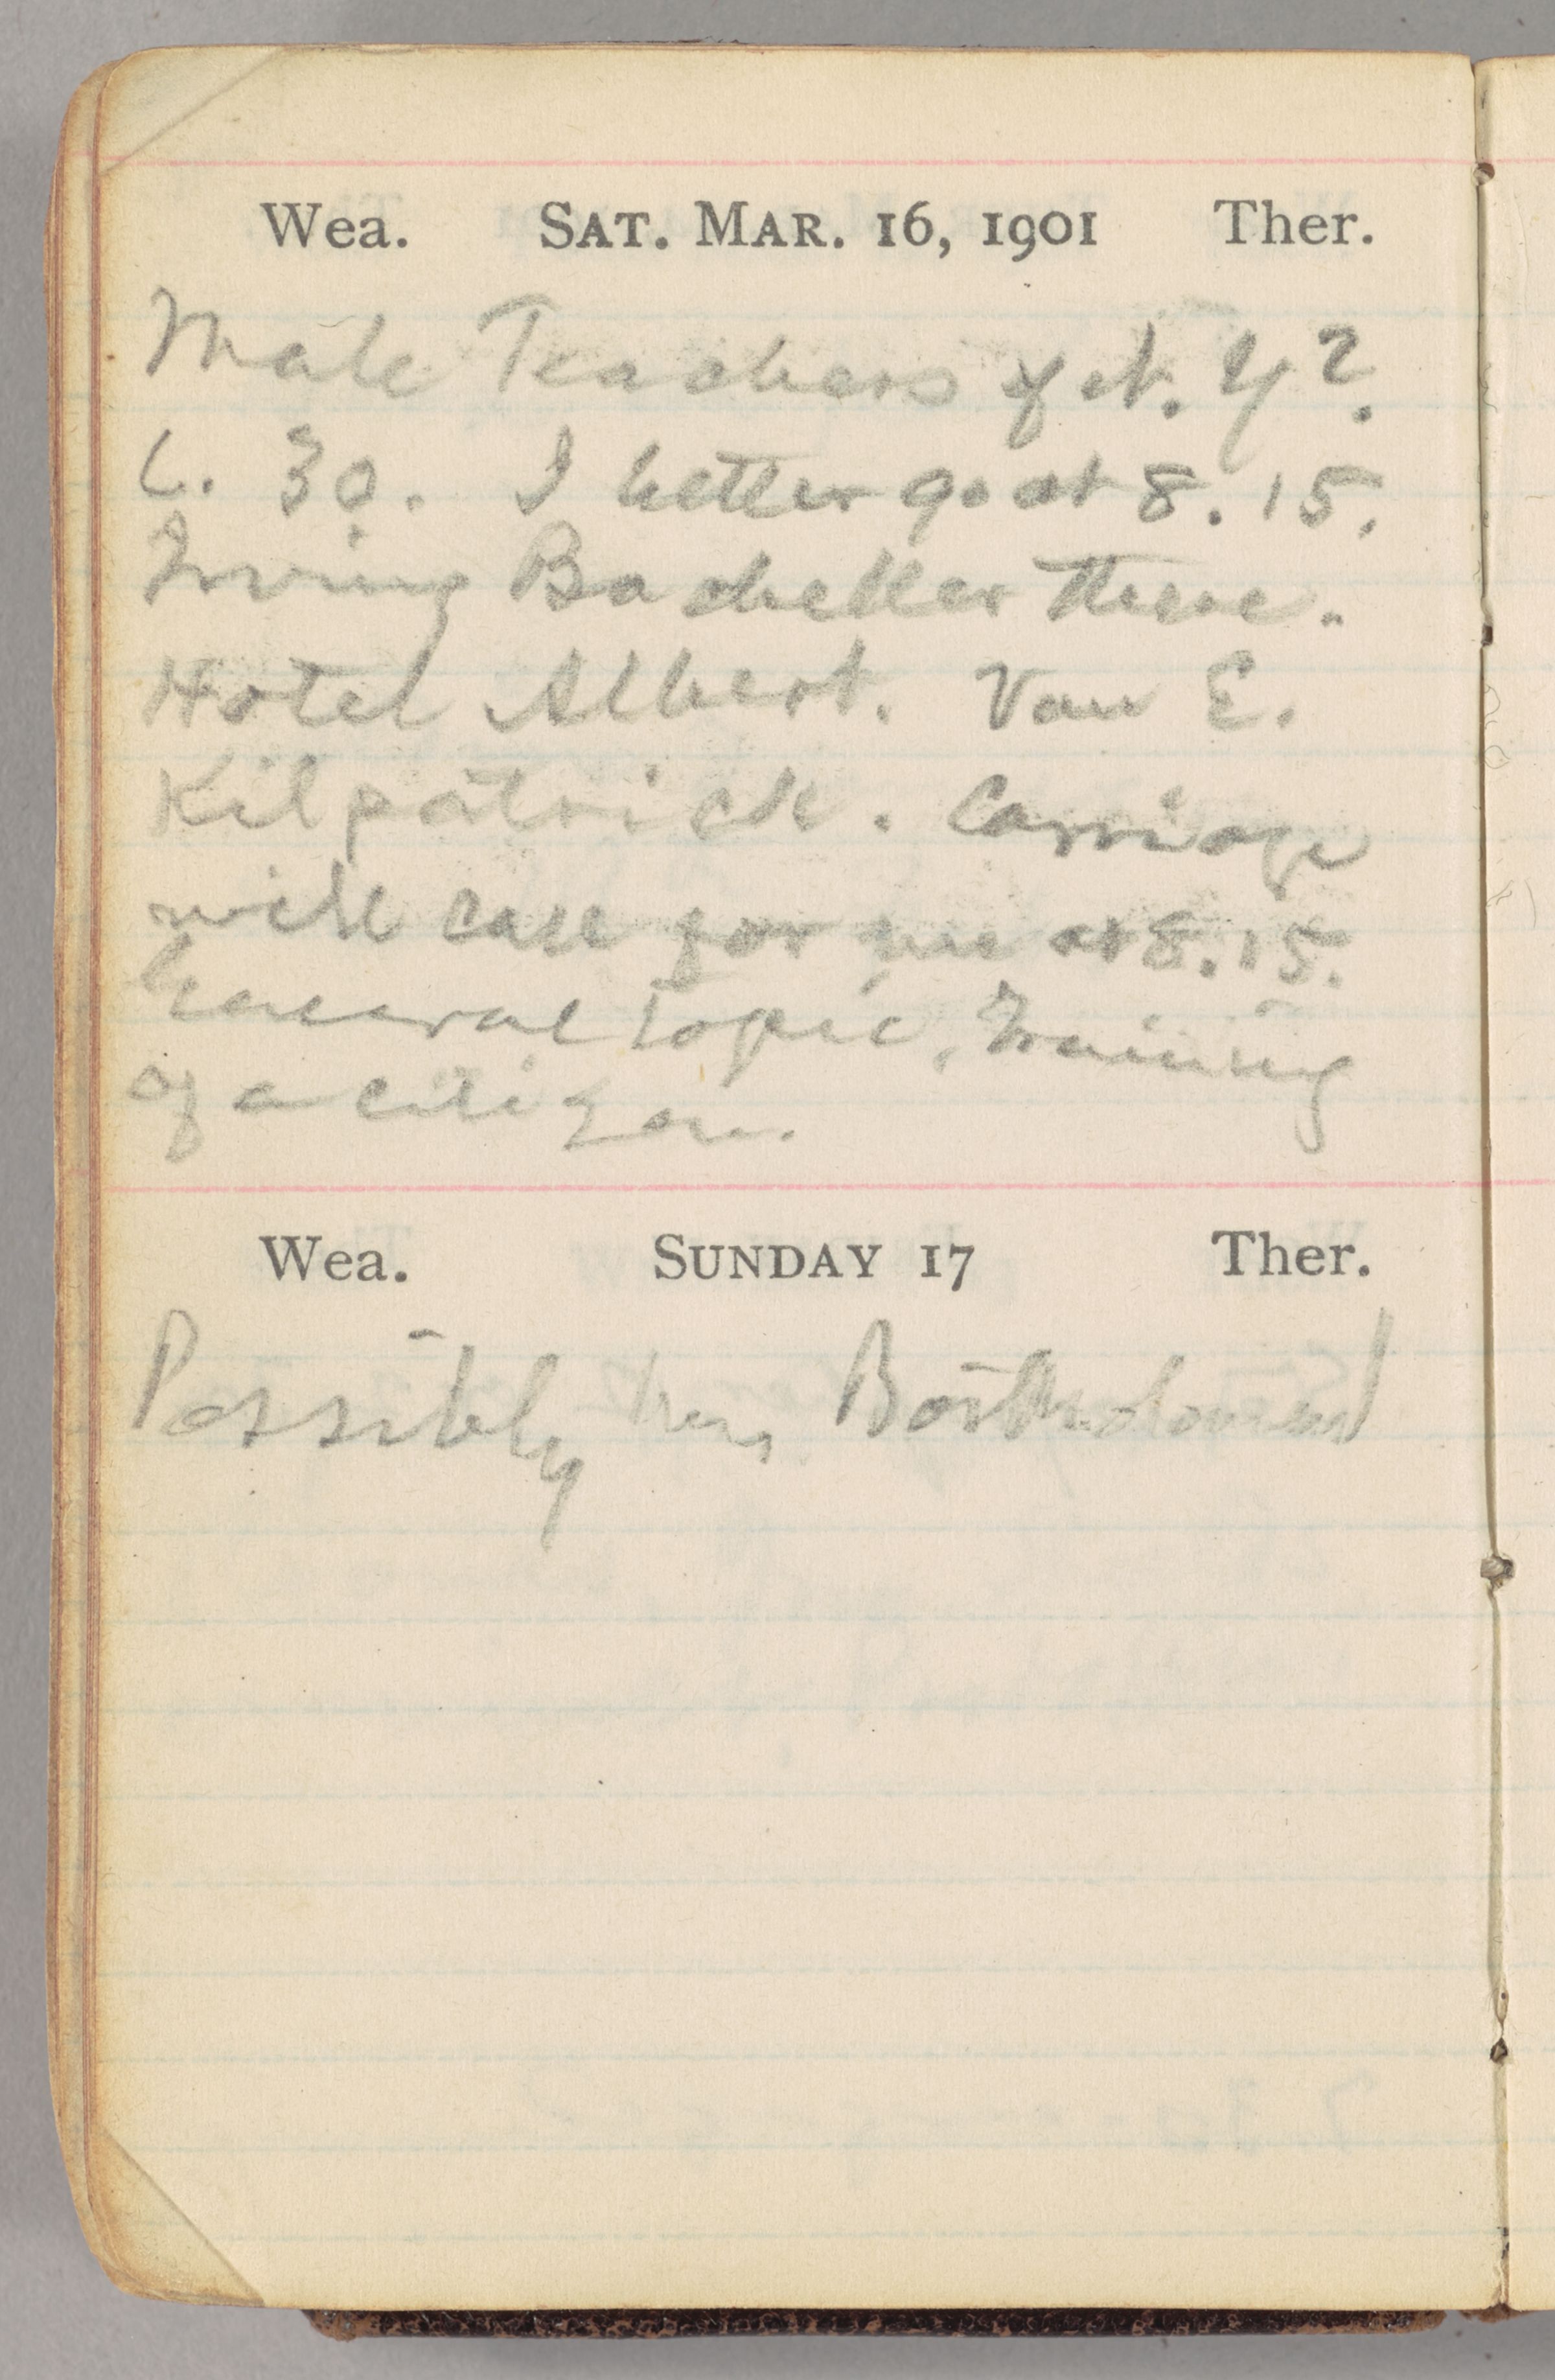 Wea. SAT. MAR. 16, 1901 Ther.
Male Teachers of N. Y?.
6. 30. I better go at 8. 15.
Irving Bacheller there.
Hotel Albert. Van E.
Kilpatrick. Carriage
will call for me at 8. 15.
General topic, Training
of a citizen.
Wea. SUNDAY 17 Ther.
Possibly Bartholomew